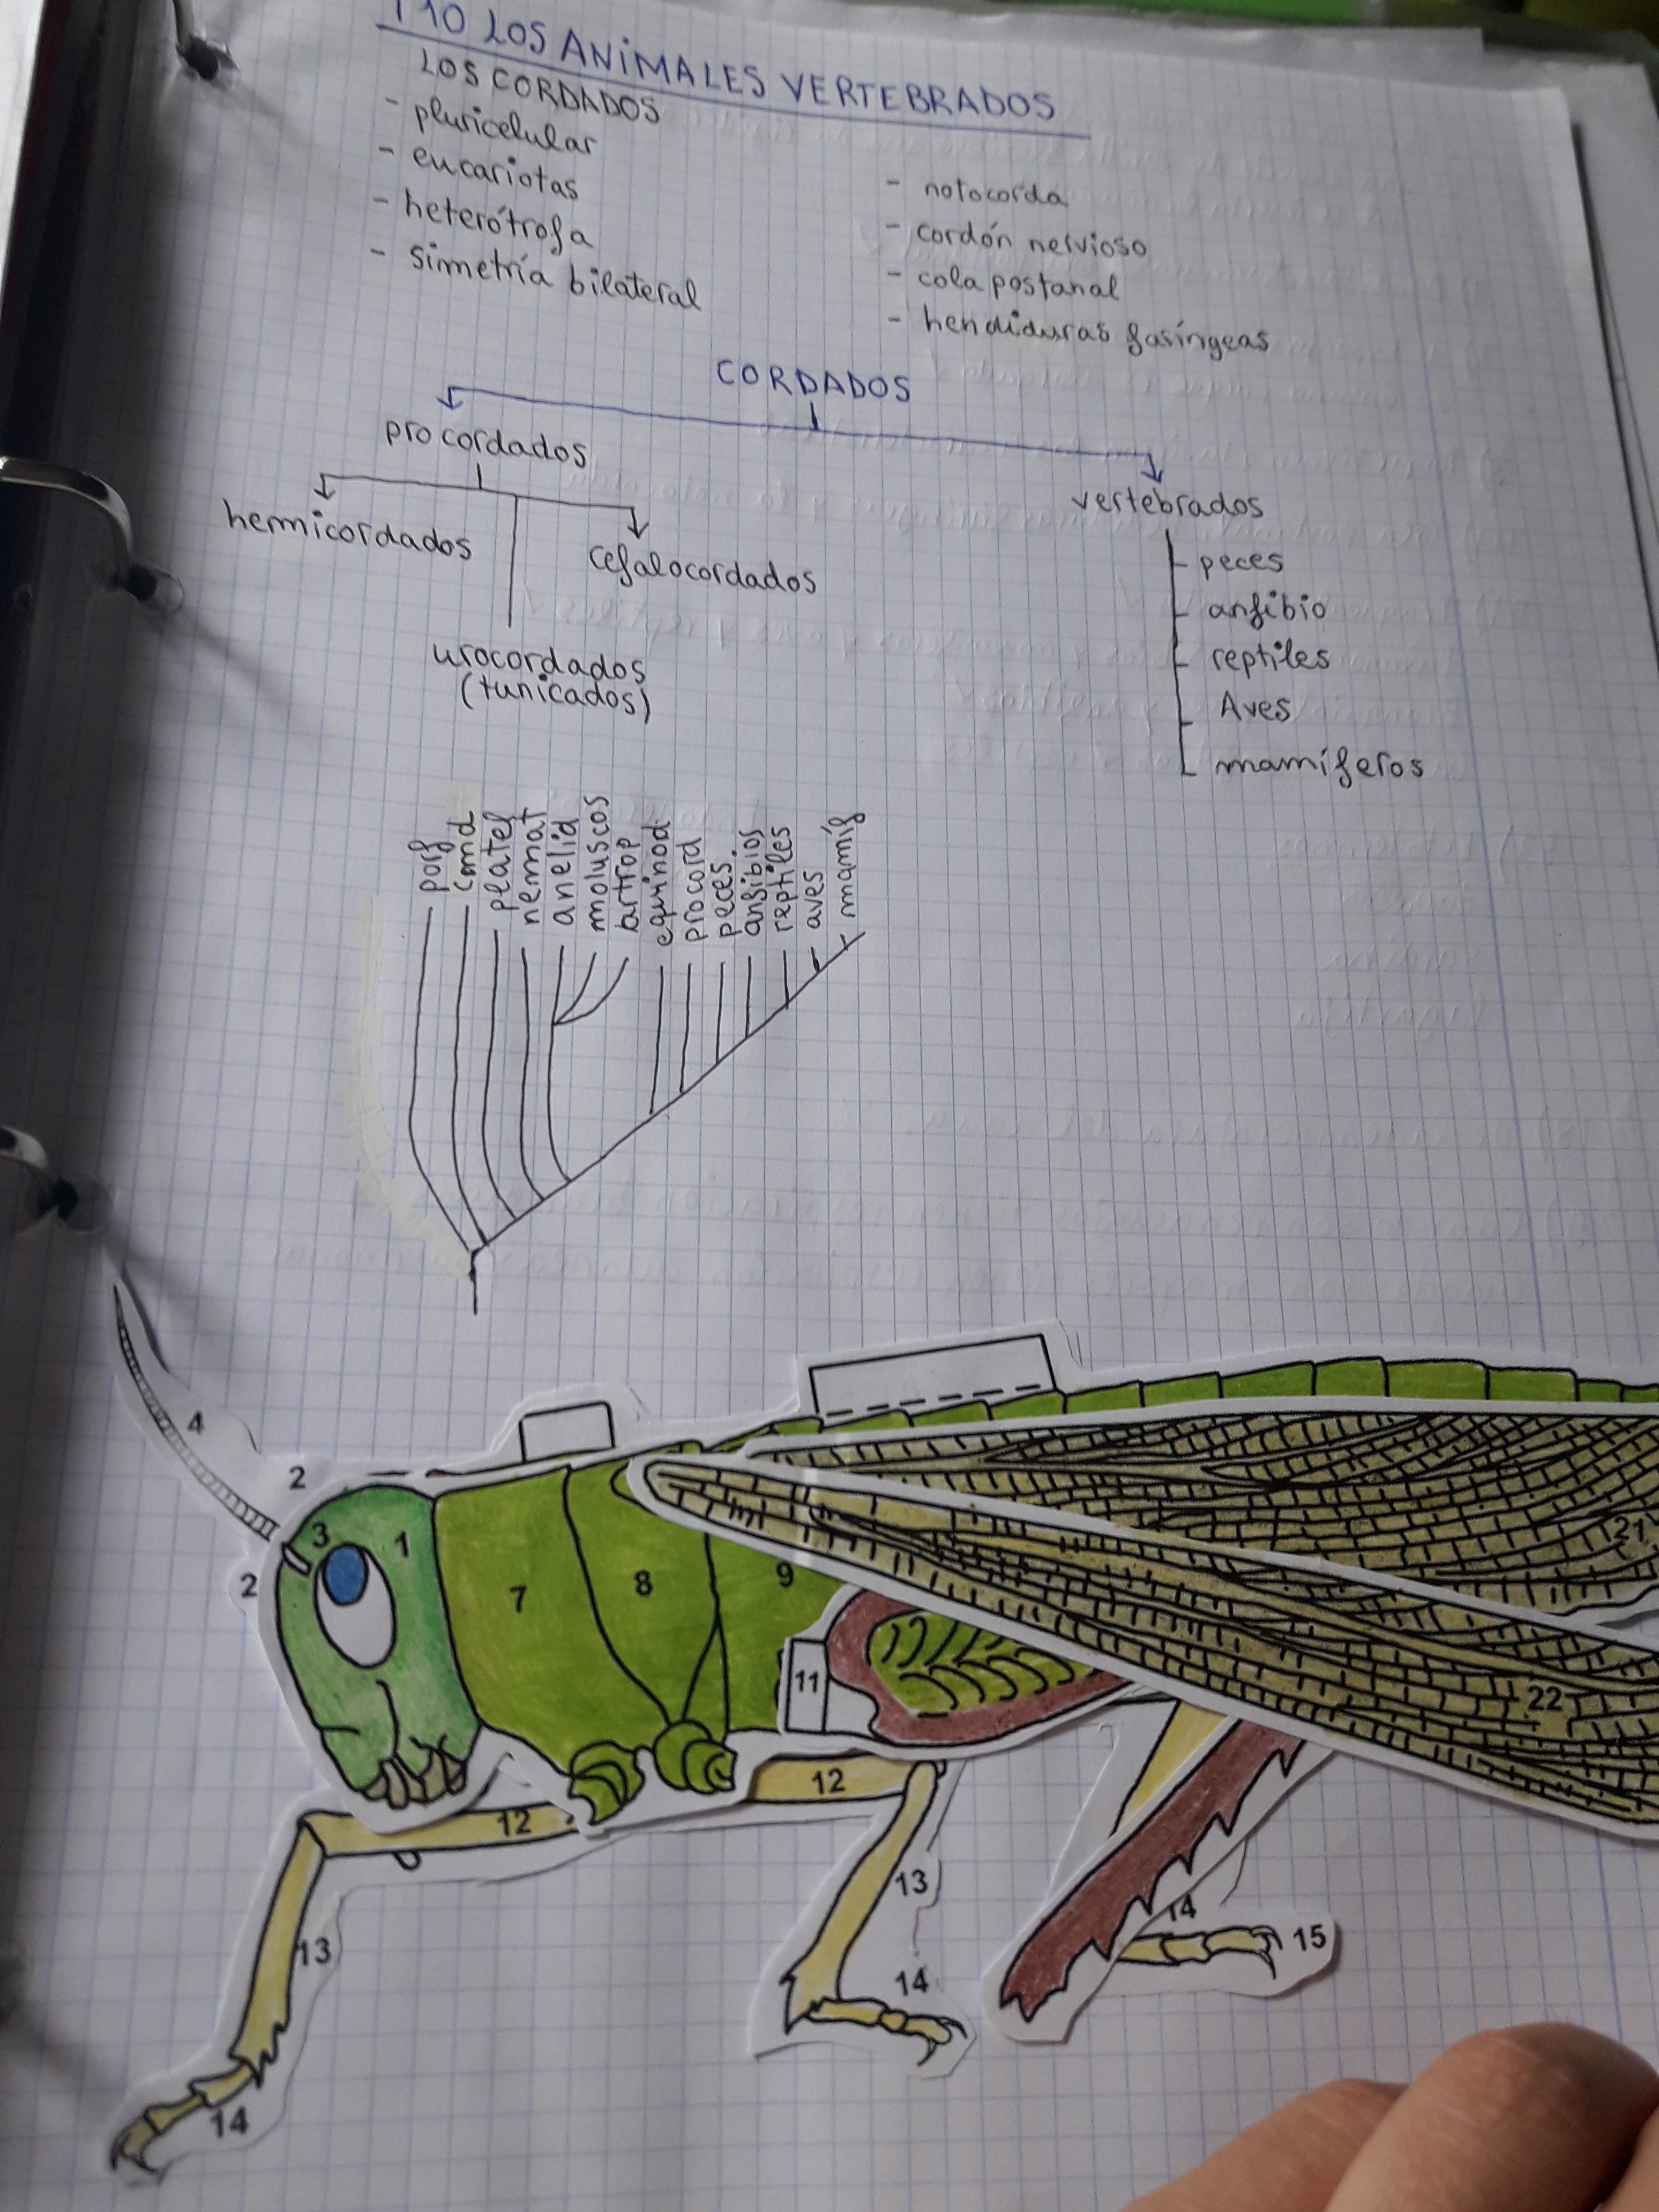 T10 LOS ANIMALES VERTEBRADOS
LOS CORDADOS
- pluricelular
- eucariotas
- heterótrofa
- simetría bilateral
- notocorda
- cordón nervioso
- cola postanal
- hendiduras faríngeas
CORDADOS
procordados
hemicordados
cefalocordados
urocordados
(tunicados)
vertebrados
peces
anfibio
reptiles
Aves
mamíferos
porf
cnid
platel
nemat
anelid
moluscos
artrop
equinod
procord
peces
anfibios
reptiles
aves
mamíf
4
2
3
1
2
7
8
9
11
21
22
12
12
13
13
14
14
14
15